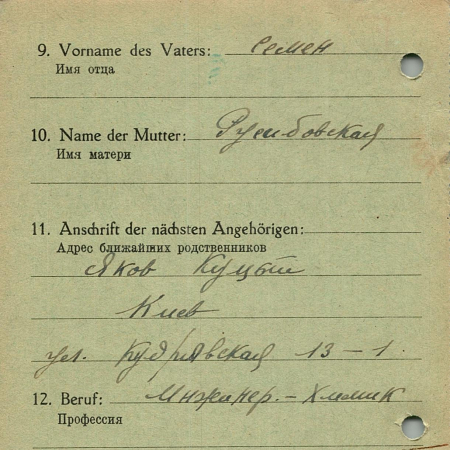 9. Vorname des Vaters: Семен
Имя отца
10. Name der Mutter:
Имя матери
11. Anschrift der nächsten Angehörigen:
Адрес ближайших родственников
Яков Куцый
Киев
ул. Кудрявская 13 – 1.
12. Beruf: Инженер. – Химик
Профессия